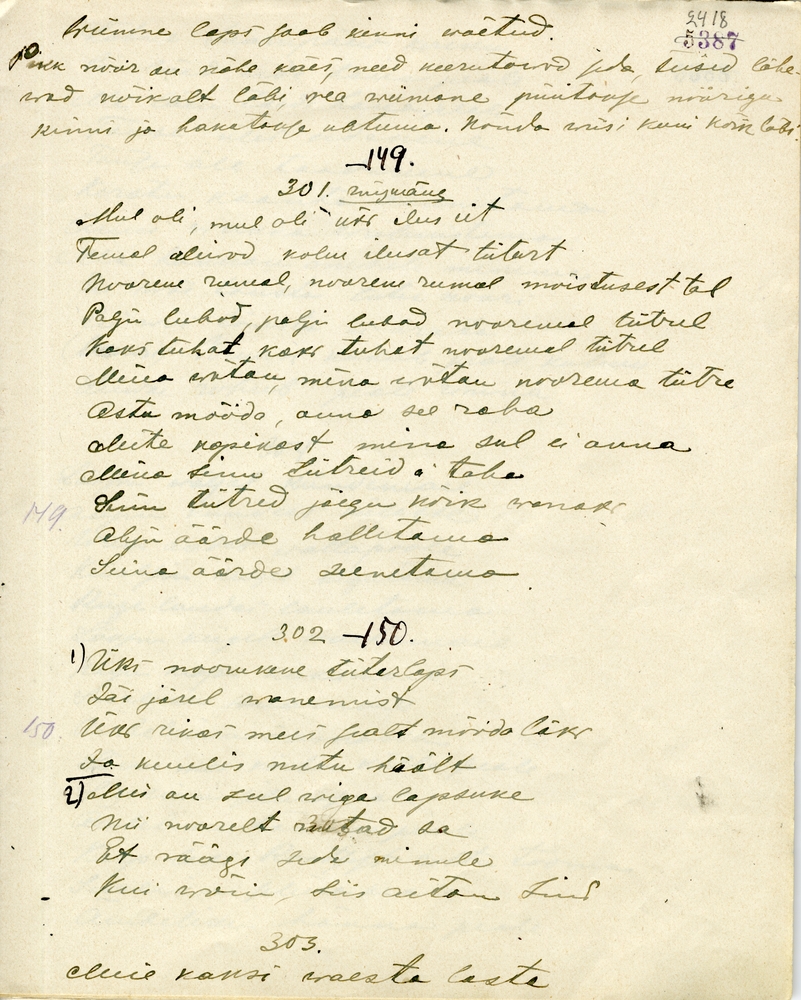 2418
5387
Wiimne laps saab kinni wõetud.
Pikk nöör on kahe käes, need keerutawad seda, teised lähe-
wad nõikalt läbi, rea wiimane püütakse nööriga
kinni ja hakatakse uktuma. Nõnda wiisi kuni kõik läbi.
149.
301. ringmäng
Mul oli, mul oli üks ilus iit
Temal oliwod kolm ilusat tütart
Noorem rumal, noorem rumal mõistusest tal
Palju lubad, palju lubad nooremal tütrel
Kaks tuhat, kaks tuhat nooremal tütrel
Mina wõtan, mina wõtan noorema tütre
Astu mööda, anna see raha
Mitte kopikast mina sul ei anna
Mina sinu tütreid ei taha
149. Sinu tütred jäegu kõik wanaks
Ahju äärde hallitama
Seina äärde seenetama
302 150.
1) Üks noorukene tütarlaps
Jäi järel wanemist
150. Üks rikas mees sealt mööda läks
Ja kuulis nutu häält
2) Mis on sul wiga lapsuke
Nii noorelt nutad sa
Et räägi seda minule
Kui wõin, siis aitan sind
303.
Meie kaksi waesta lasta